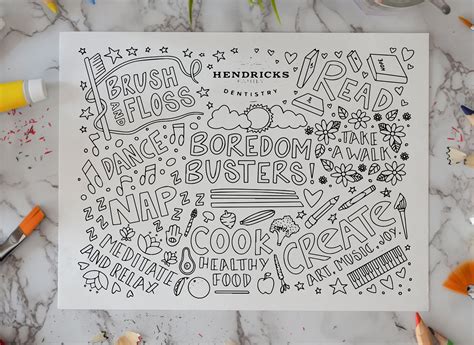 HENDRICKS
FAMILY
DENTISTRY
BRUSH
AND FLOSS
READ
DANCE
BOREDOM
BUSTERS!
TAKE
A WALK
NAP
MEDITATE
AND RELAX
COOK
HEALTHY
FOOD
CREATE
ART, MUSIC, JOY.